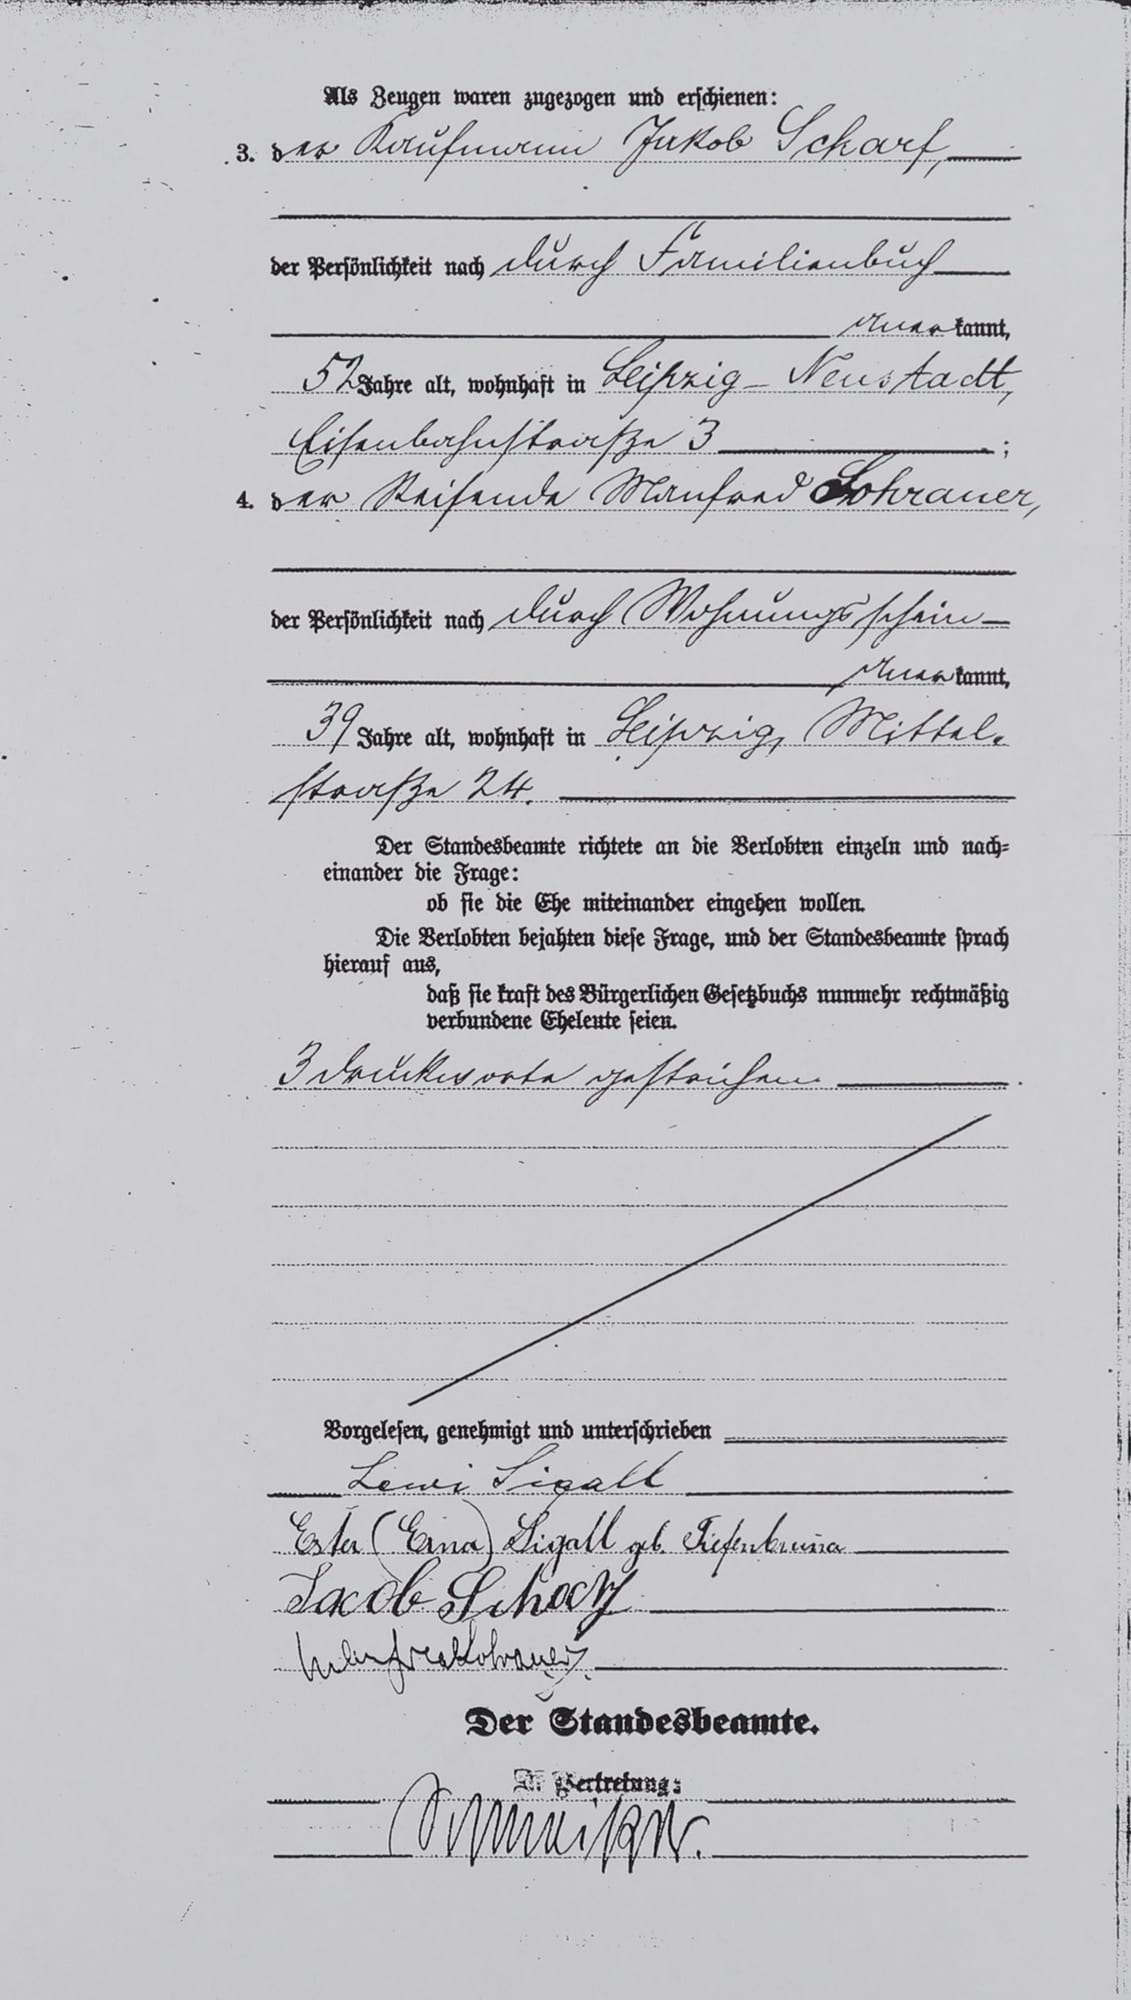 Als Zeugen waren zugezogen und erschienen:
3. der Kaufmann Jakob Scharf,
der Persönlichkeit nach durch Familienbuch
anerkannt,
52 Jahre alt, wohnhaft in Leipzig-Neustadt,
Eisenbahnstraße 3 ;
4. der Reisende Manfred Sohrauer,
der Persönlichkeit nach durch Wohnungsschein
anerkannt,
39 Jahre alt, wohnhaft in Leipzig, Mittel-
straße 24.
Der Standesbeamte richtete an die Verlobten einzeln und nach-
einander die Frage:
ob sie die Ehe miteinander eingehen wollen.
Die Verlobten bejahten diese Frage, und der Standesbeamte sprach
hierauf aus,
daß sie kraft des Bürgerlichen Gesetzbuchs nunmehr rechtmäßig
verbundene Eheleute seien.
3 Druckworte gestrichen.
Vorgelesen, genehmigt und unterschrieben
Lewi Sigall
Ester (Erna) Sigall geb. Tiefenbrunn
Jacob Scharf
Manfred Sohrauer
Der Standesbeamte.
In Vertretung: